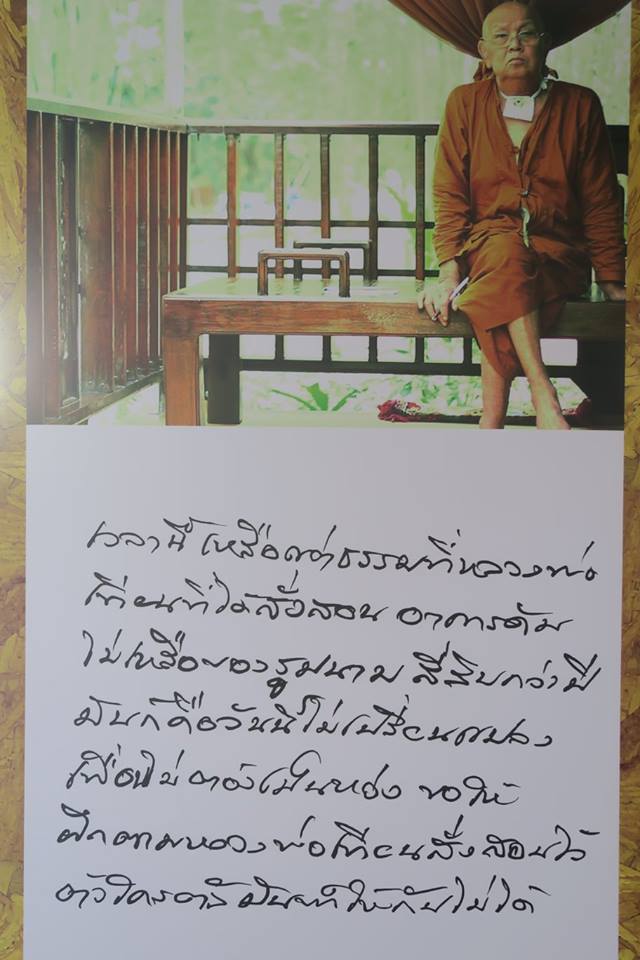 เวลานี้ เหลือแต่ธรรมที่หลวงพ่อ
เทียนที่ได้สั่งสอน อาการดับ
ไม่เหลือของรูปนาม สี่สิบกว่าปี
มันก็คือวันนี้ไม่เปลี่ยนแปลง
เพื่อนไม่ต้องเป็นห่วง ขอให้
ฝึกตามหลวงพ่อเทียนสั่งสอนไว้
ตัวใครตัวมันทำให้กันไม่ได้